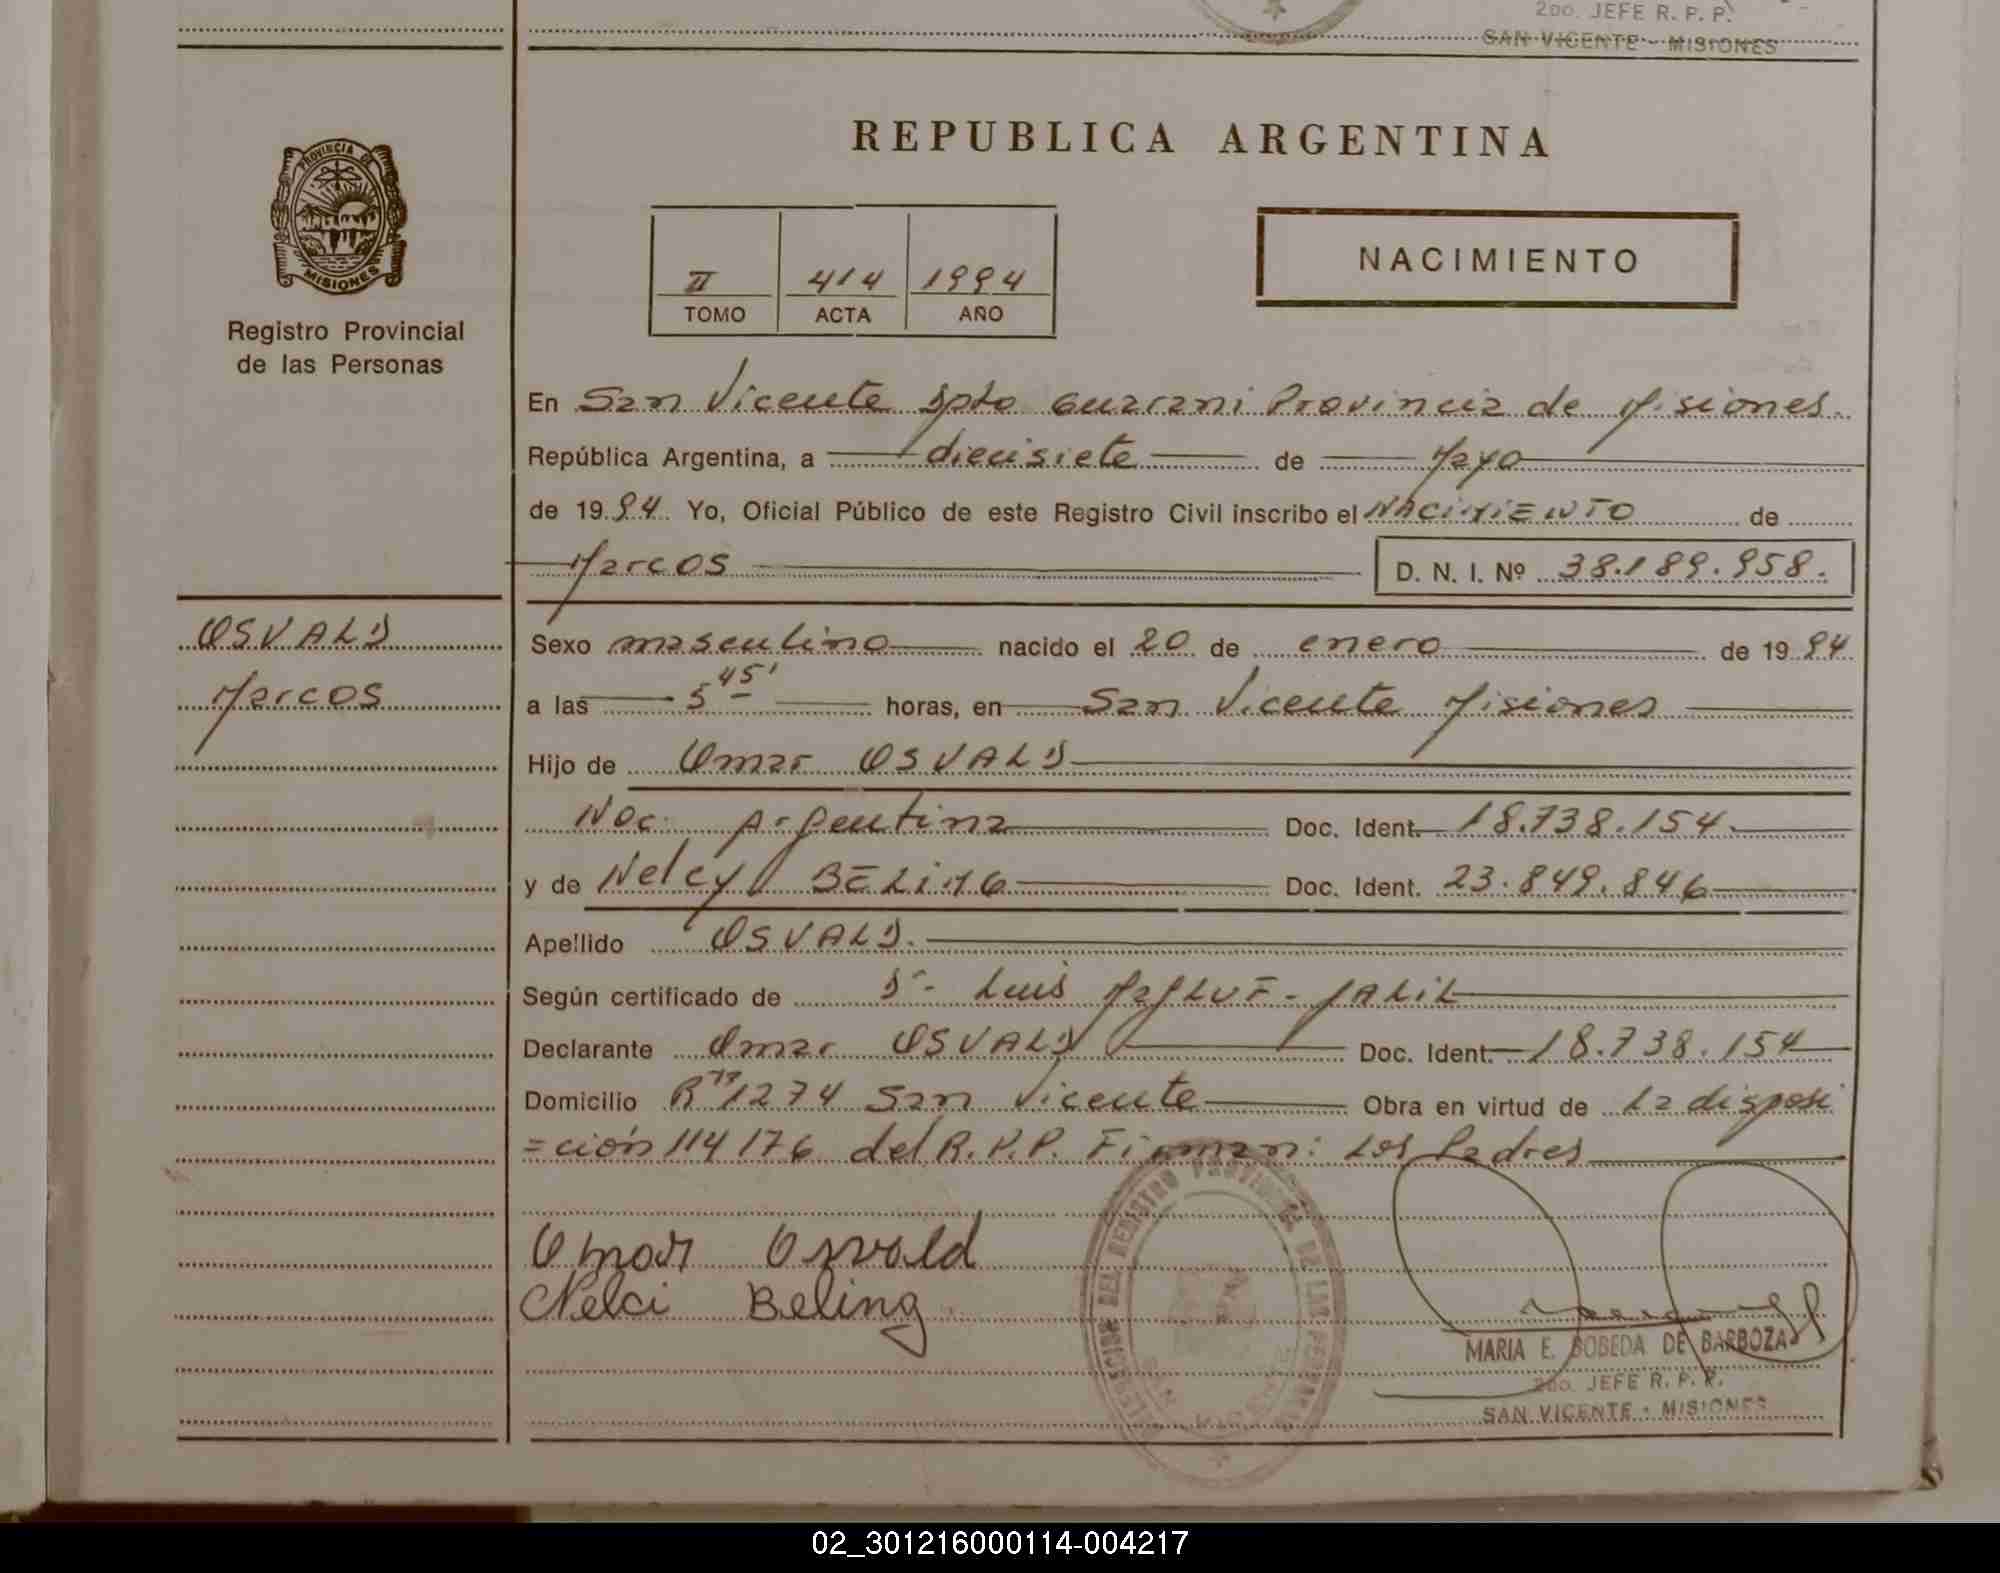 2do. JEFE R. P. P.
SAN VICENTE - MISIONES
PROVINCIA DE
MISIONES
Registro Provincial
de las Personas
OSVALD
Marcos
REPUBLICA ARGENTINA
II 414 1994
TOMO ACTA AÑO
NACIMIENTO
En San Vicente Dpto Guarani Provincia de Misiones
República Argentina, a diecisiete de Mayo
de 1994 Yo, Oficial Público de este Registro Civil inscribo el NACIMIENTO de
Marcos D. N. I. Nº 38.189.958.
Sexo masculino nacido el 20 de enero de 1994
a las 5 45' horas, en San Vicente Misiones
Hijo de Omar OSVALD
Nac. Argentina Doc. Ident. 18.738.154.
y de Nelcy BELING Doc. Ident. 23.849.846
Apellido OSVALD.
Según certificado de Dr. Luis JALIL
Declarante Omar OSVALD Doc. Ident. 18.738.154
Domicilio 1274 San Vicente Obra en virtud de La disposi
=ción 114/76 del R.P.P. Firman: Los Padres
Omar Osvald
Nelci Beling
MARIA E. BOBEDA DE BARBOZA
2do. JEFE R. P. P.
SAN VICENTE - MISIONES
02_301216000114-004217